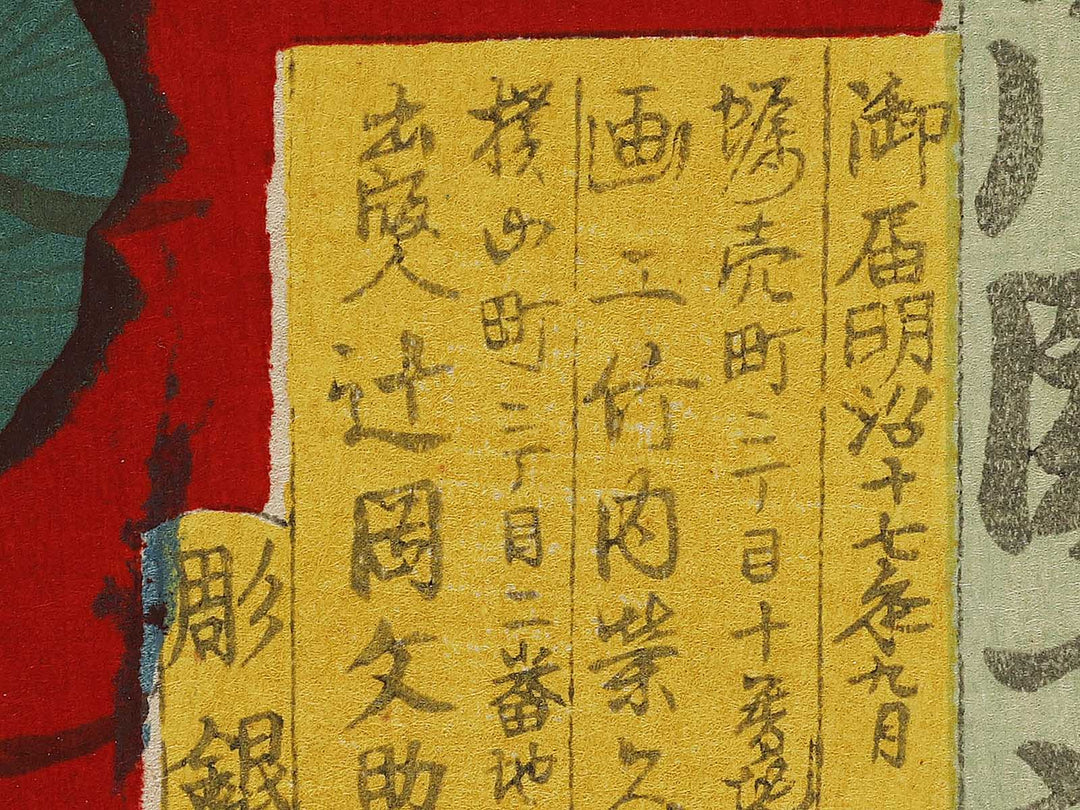 御届明治十七年九月
蠣売町三丁目十番地
画工竹内栄久
横山町三丁目二番地
出版人辻岡文助
彫銀